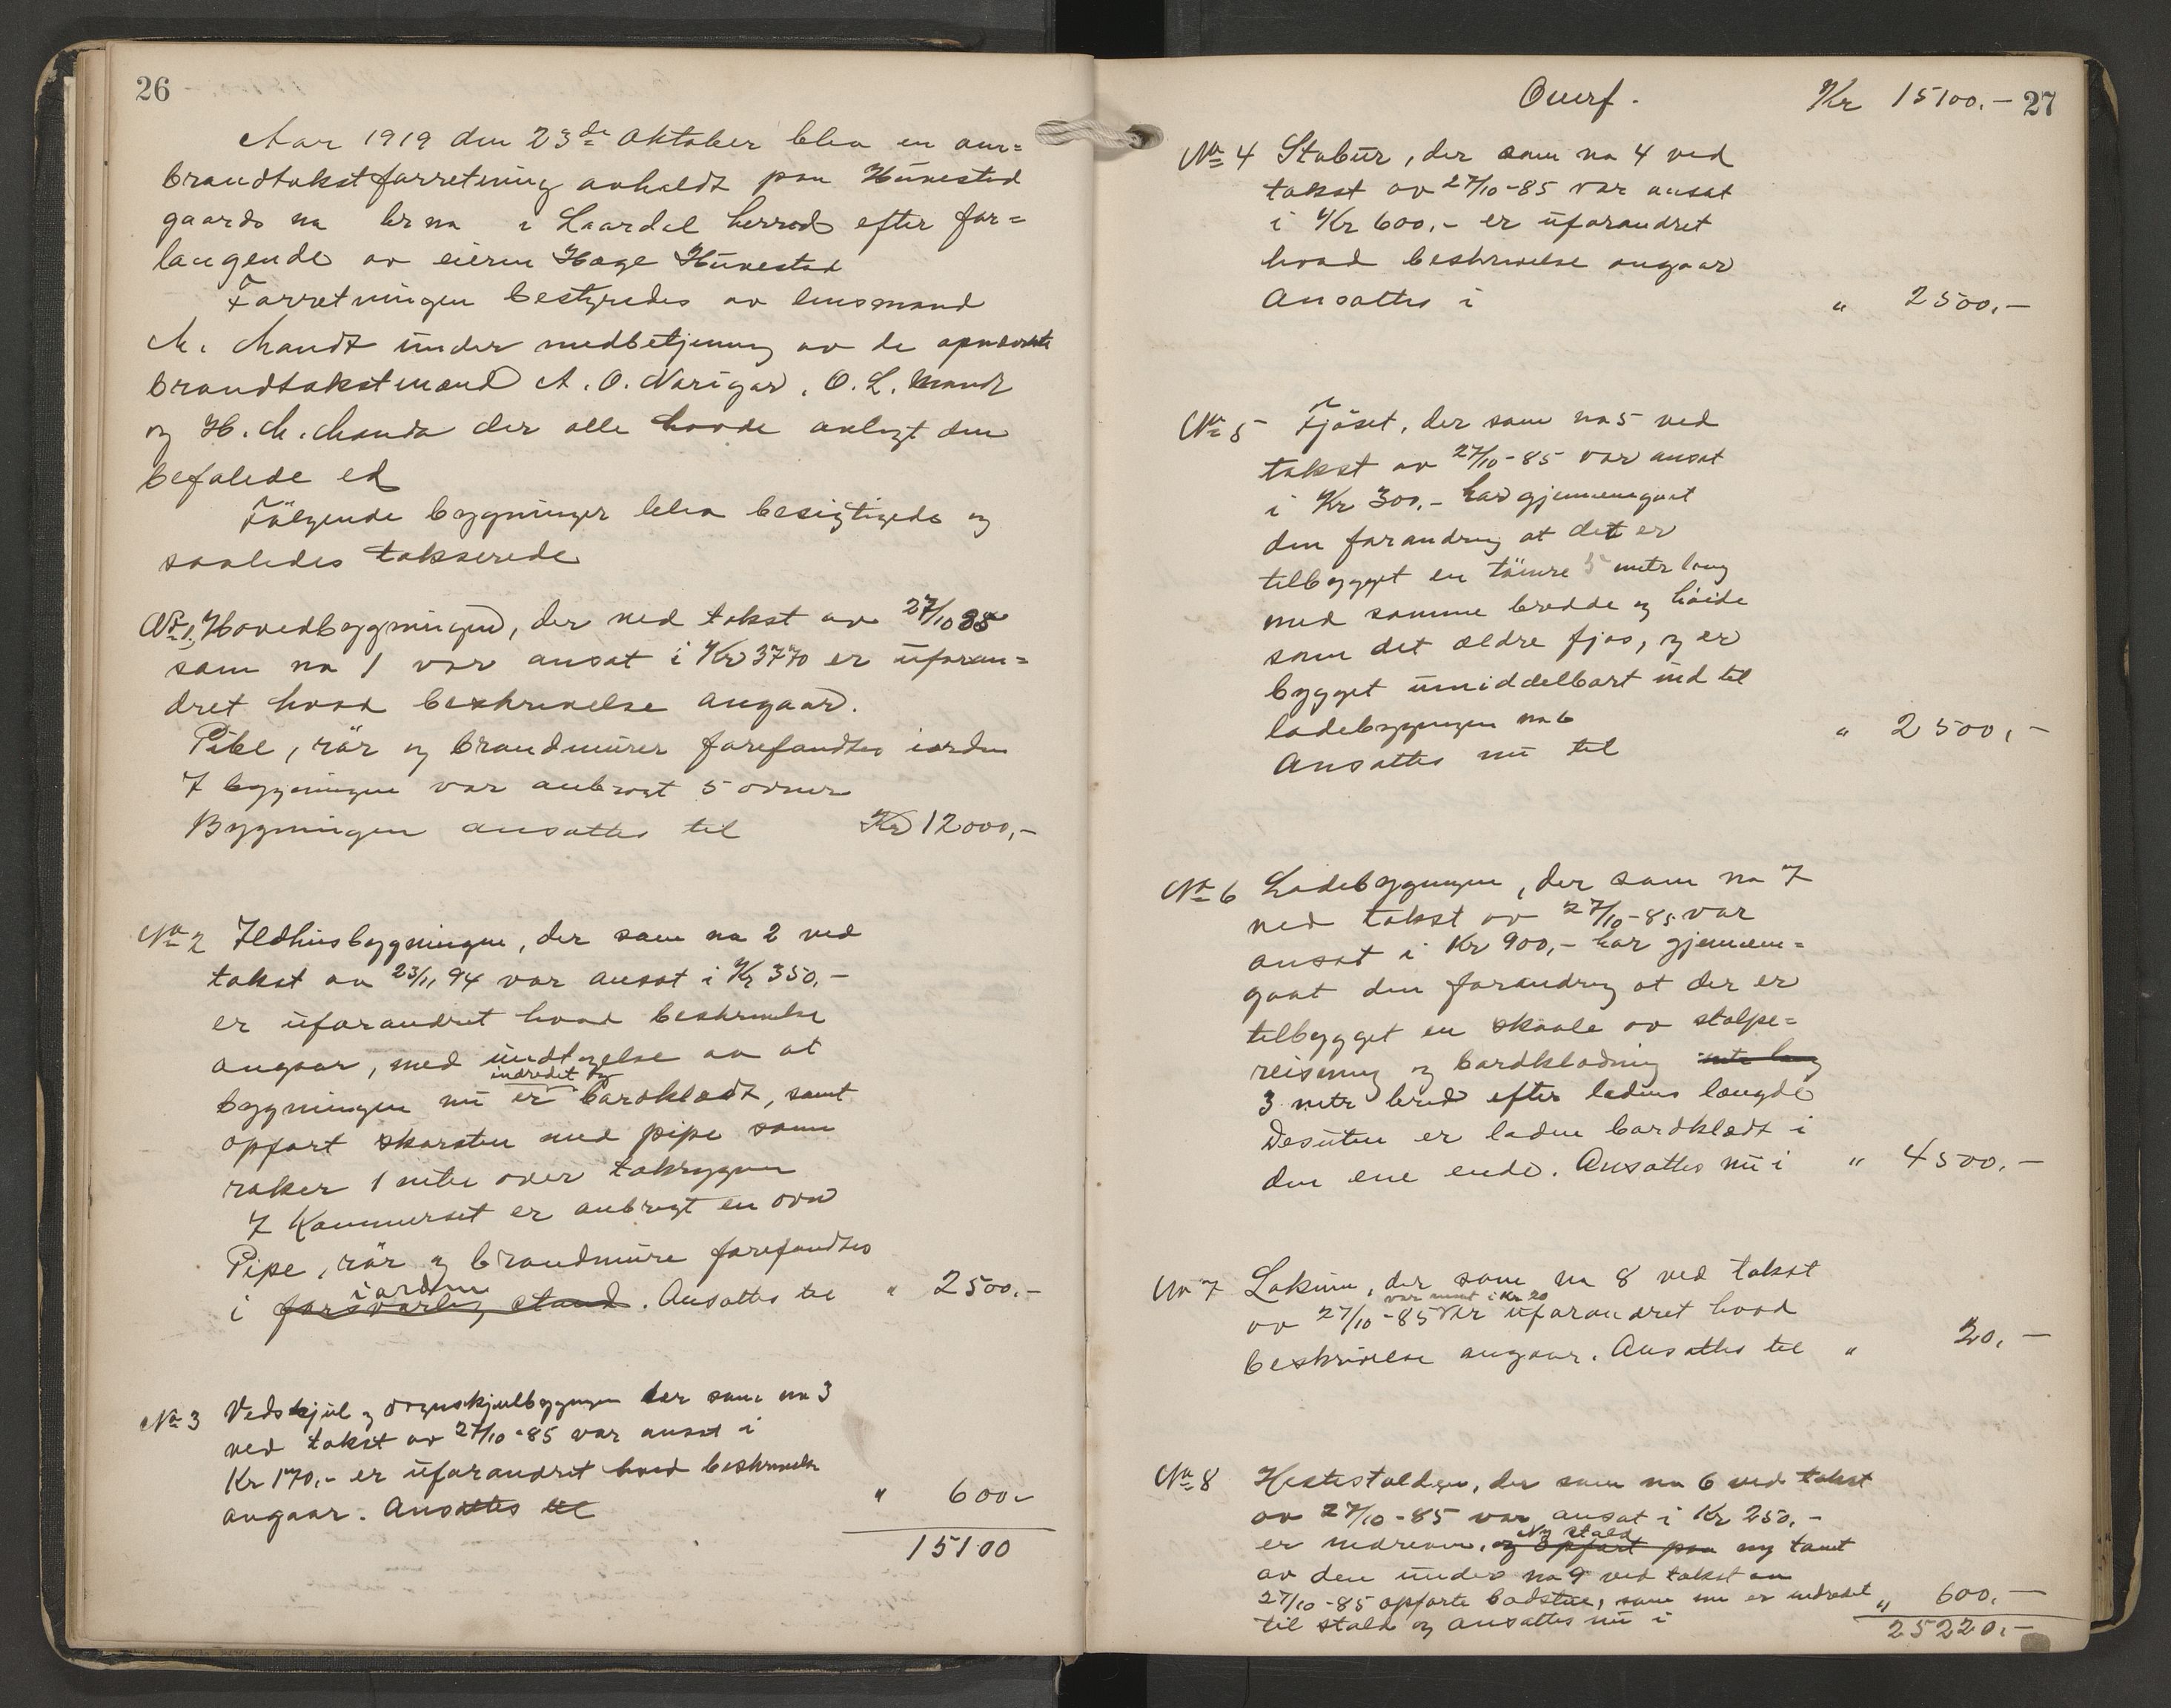 26
Aar 1919 den 23de Oktober blev en om=
brandtakstforretning avholdt paa Hunestad
gaards no br no i Laardal herred efter for=
langende av eieren Hæge Hunestad
Forretningen bestyredes av lensmand
M. Mandt under medbetjening av de opnævnte
brandtakstmænd A. O. Narigar, O. L. Mandt
og H. M. Mandt der alle havde avlagt den
befalede ed
Følgende bygninger blev besigtigede og
saaledes takserede
No 1. Hovedbygningen, der ved takst av 27/10 85
som no 1 var ansat i Kr 3770 er uforan=
dret hvad beskrivelse angaar.
Pibe, rør og brandmurer forefandtes iorden
I bygningen var anbragt 5 ovner
Bygningen ansattes til Kr 12000,-
No 2 Ildhusbygningen, der som no 2 ved
takst av 23/11 94 var ansat i Kr 350,-
er uforandret hvad beskrivelse
angaar, med undtagelse av at
indredet og
bygningen nu er bordklædt, samt
opført skorsten med pipe som
raker 1 meter over takryggen
I Kammerset er anbragt en ovn
Pipe, rør og brandmure forefandtes
iorden
i forsvarlig stand. Ansattes til " 2500.-
No 3 Vedskjul og vognskjulbygningen der som no 3
ved takst av 27/10-85 var ansat i
Kr 170,- er uforandret hvad beskrivelse
angaar. Ansattes til " 600.-
15100
Overf. Kr 15100.- 27
No 4 Stabur, der som no 4 ved
takst av 27/10-85 var ansat
i Kr 600,- er uforandret
hvad beskrivelse angaar
Ansattes i " 2500,-
No 5 Fjøset, der som no 5 ved
takst av 27/10-85 var ansat
i Kr 300,- har gjennemgaat
den forandring at det er
tilbygget en tømre 5 metr lang
med samme bredde og høide
som det ældre fjøs, og er
bygget umiddelbart ind til
ladebygningen no 6
Ansattes nu til " 2500,-
No 6 Ladebygningen, der som no 7
ved takst av 27/10-85 var
ansat i Kr 900,- har gjennem=
gaat den forandring at der er
tilbygget en skaale av stolpe=
reisning og bordklædning metr lang
3 metr bred efter ladens længde
Desuten er laden bordklædt i
den ene ende. Ansattes nu i " 4500.-
No 7 Lokum, der som no 8 ved takst
var ansat i Kr 20
av 27/10-85 er uforandret hvad
beskrivelse angaar. Ansattes til " 20.-
No 8 Hestestalden, der som no 6 ved takst
av 27/10-85 var ansat i Kr 250.-
Ny stald
er nedreven, og opført paa ny tomt
av den under no 9 ved takst av
27/10-85 opførte badstue, som nu er indredet
til stald og ansattes nu i " 600.-
25220.-